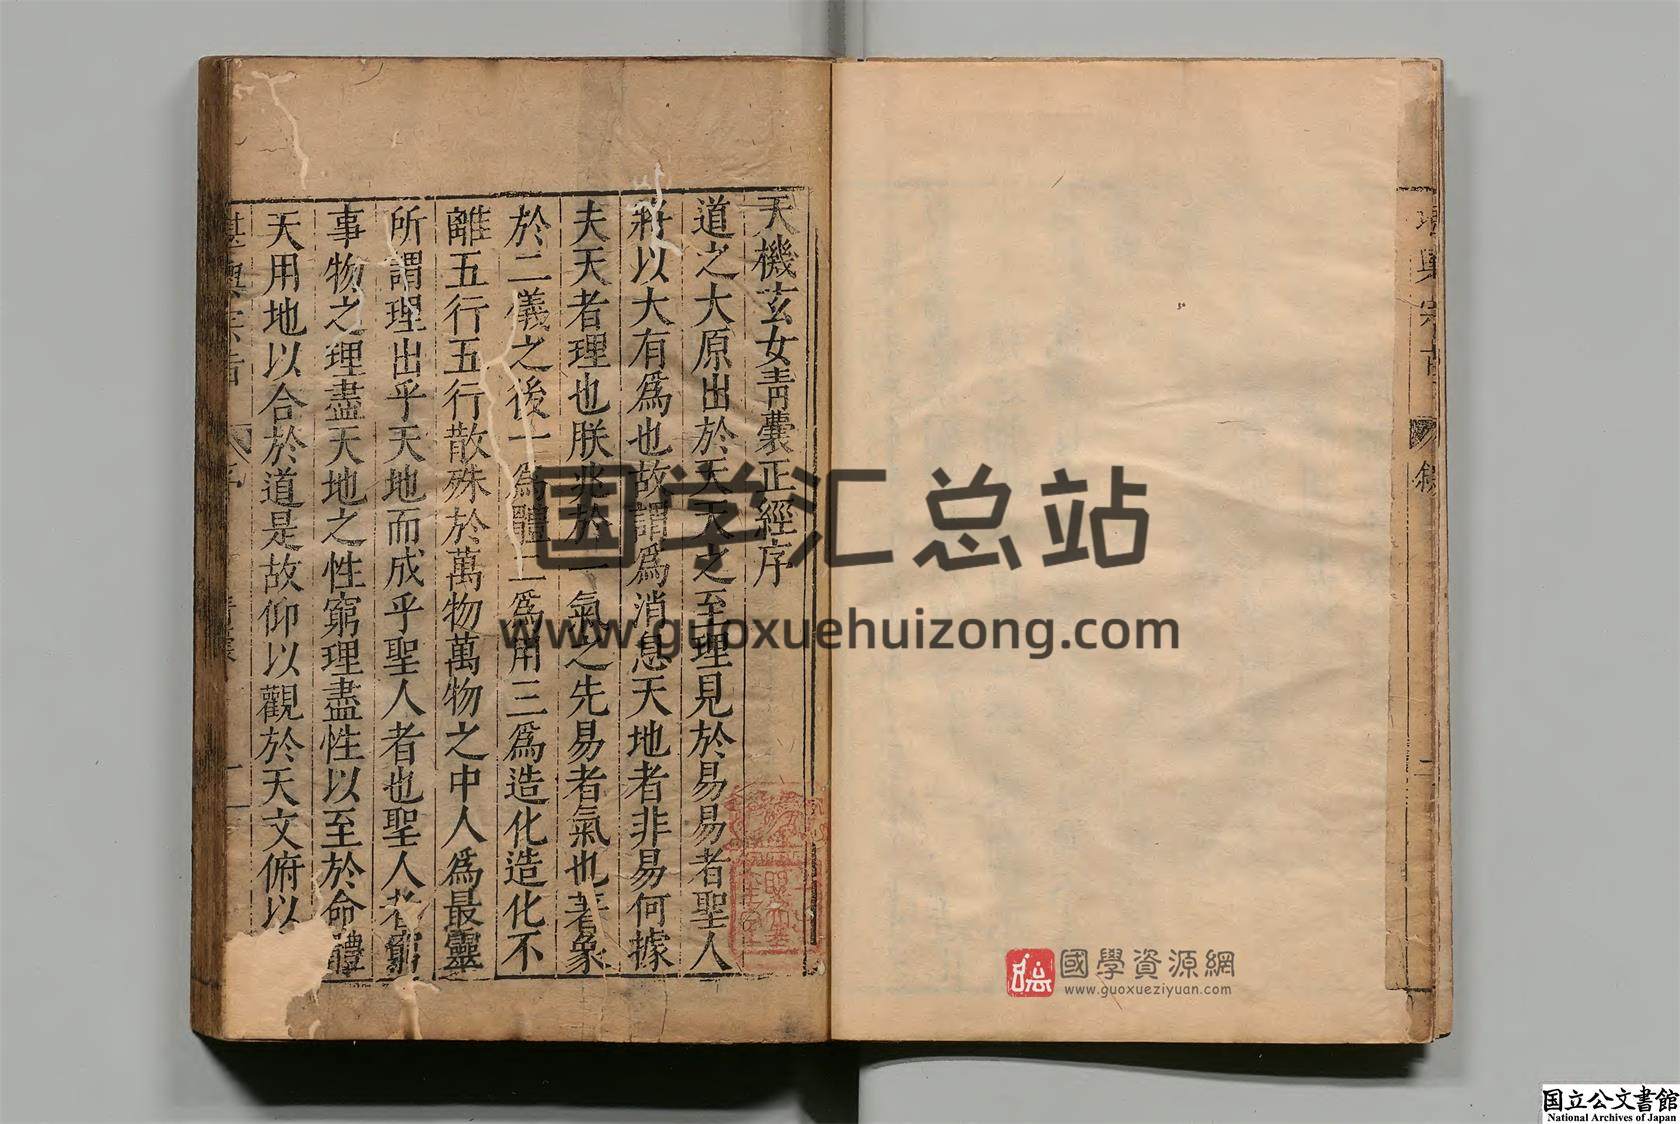 天機玄女青囊正經序
道之大原出於天天之至理見於易易者聖人
將以大有爲也故謂爲消息天地者非易何據
夫天者理也朕兆於一氣之先易者氣也著象
於二儀之後一爲體二爲用三爲造化造化不
離五行五行散殊於萬物萬物之中人爲最靈
所謂理出乎天地而成乎聖人者也聖人者窮
事物之理盡天地之性窮理盡性以至於命體
天用地以合於道是故仰以觀於天文俯以
堪輿宗旨
序
青囊
一
堪輿宗旨
敘
二
国学汇总站
www.guoxuehuizong.com
國學資源網
www.guoxueziyuan.com
国立公文書館
National Archives of Japan